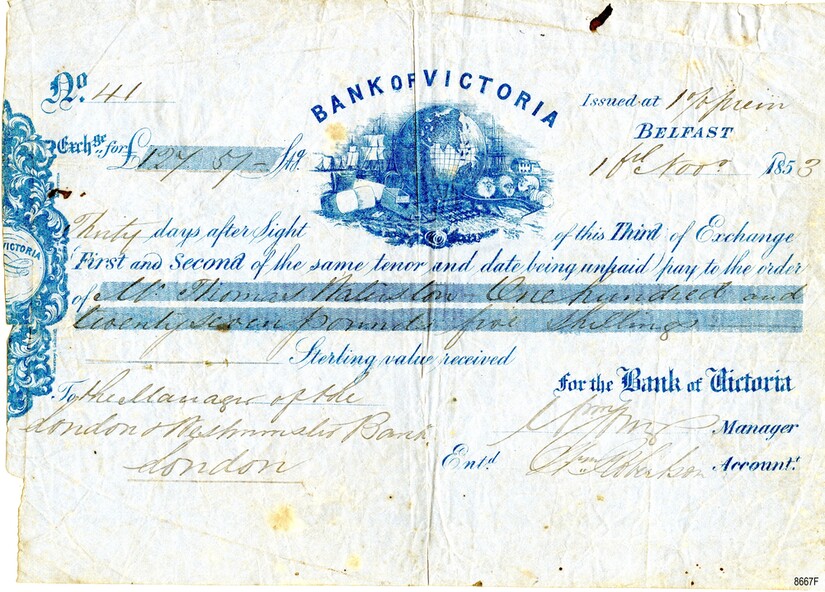 BANK OF VICTORIA
No. 41
Issued at
BELFAST
Exchge. for £127 5/- Stg.
1st Novr 1853
Thirty days after Sight of this Third of Exchange
First and Second of the same tenor and date being unpaid pay to the order
of Mr Thomas Waterston One hundred and
twenty seven pounds five shillings
Sterling value received
For the Bank of Victoria
To the Manager of the
London & Westminster Bank
London
Manager
Entd. Robertson Accountt.
VICTORIA
8667F